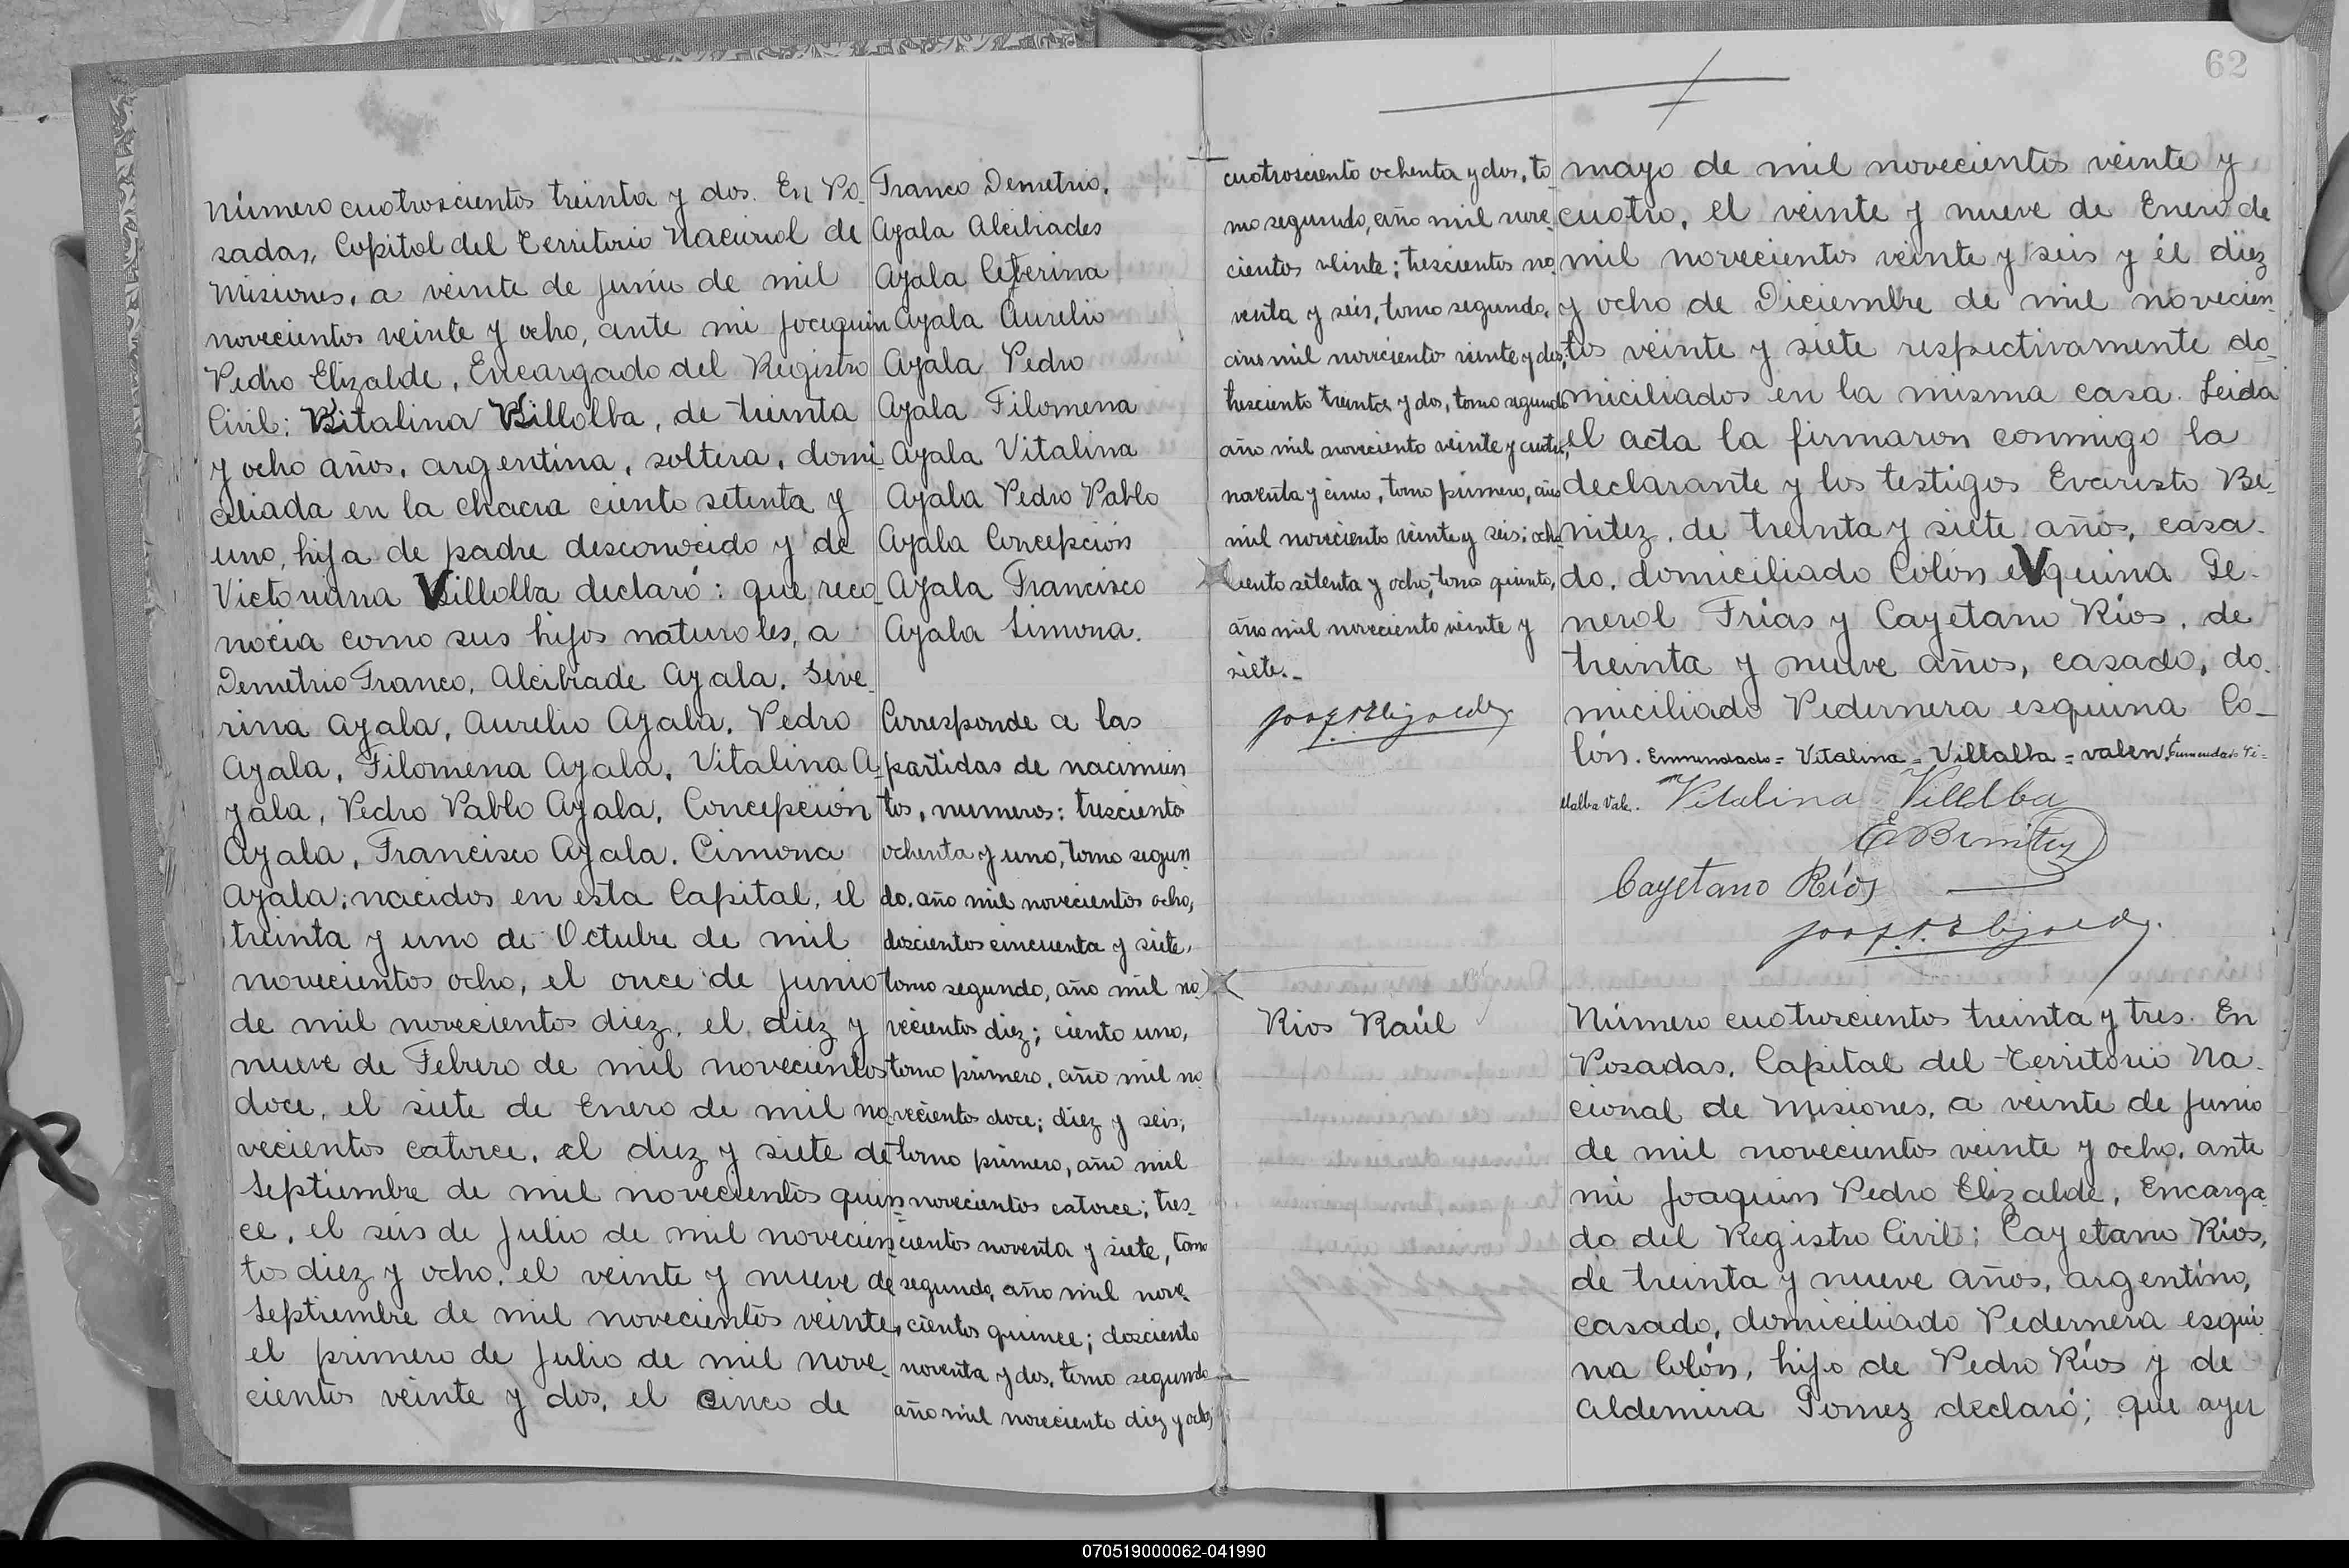 62
Número cuatroscientos treinta y dos. En Po-
sadas, Capital del Territorio Nacional de
Misiones, a veinte de junio de mil
novecientos veinte y ocho, ante mi Joaquin
Pedro Elizalde, Encargado del Registro
Civil: Vitalina Villalba, de treinta
y ocho años, argentina, soltera, domi-
ciliada en la chacra ciento setenta y
uno, hija de padre desconocido y de
Victoriana Villalba declaró: que reco-
nocia como sus hijos naturales, a
Demetrio Franco, Alcibiade Ayala, Seve-
rina Ayala, Aurelio Ayala, Pedro
Ayala, Filomena Ayala, Vitalina A-
yala, Pedro Pablo Ayala, Concepción
Ayala, Francisco Ayala, Cimona
Ayala; nacidos en esta Capital, el
treinta y uno de Octubre de mil
novecientos ocho, el once de junio
de mil novecientos diez, el diez y
nueve de Febrero de mil novecientos
doce, el siete de Enero de mil no-
vecientos catorce, el diez y siete de
Septiembre de mil novecientos quin-
ce, el seis de Julio de mil novecien-
tos diez y ocho, el veinte y nueve de
Septiembre de mil novecientos veinte,
el primero de Julio de mil nove-
cientos veinte y dos, el cinco de
Franco Demetrio,
Ayala Alcibiades
Ayala Ceferina
Ayala Aurelio
Ayala Pedro
Ayala Filomena
Ayala Vitalina
Ayala Pedro Pablo
Ayala Concepción
Ayala Francisco
Ayala Simona.
Corresponde a las
partidas de nacimien
tos, numeros: trescientos
ochenta y uno, tomo segun
do, año mil novecientos ocho,
doscientos cincuenta y siete,
tomo segundo, año mil no
vecientos diez; ciento uno,
tomo primero, año mil no
vecientos doce; diez y seis,
tomo primero, año mil
novecientos catorce; tres-
cientos noventa y siete, tomo
segundo, año mil nove-
cientos quince; dosciento
noventa y dos, tomo segundo
año mil noveciento diez y ocho;
cuatrosciento ochenta y dos, to-
mo segundo, año mil nove-
cientos veinte; trescientos no-
venta y seis, tomo segundo,
año mil novecientos veinte y dos;
tresciento treinta y dos, tomo segundo
año mil noveciento veinte y cuatro,
noventa y cinco, tomo primero, año
mil noveciento veinte y seis; ocho-
ciento setenta y ocho, tomo quinto,
año mil noveciento veinte y
siete.-
mayo de mil novecientos veinte y
cuatro, el veinte y nueve de Enero de
mil novecientos veinte y seis y el diez
y ocho de Diciembre de mil novecien-
tos veinte y siete respectivamente do-
miciliados en la misma casa. Leida
el acta la firmaron conmigo la
declarante y los testigos Evaristo Be-
nitez, de treinta y siete años, casa-
do, domiciliado Colón esquina Ge-
neral Frías y Cayetano Ríos, de
treinta y nueve años, casado, do-
miciliado Pedernera esquina Co-
lón. Enmendado = Vitalina = Villalba = valen. Enmendado Vi-
llalba vale. Vitalina Villalba
E Benitez
Cayetano Ríos
Rios Raúl
Número cuatroscientos treinta y tres. En
Posadas, Capital del Territorio Na-
cional de Misiones, a veinte de junio
de mil novecientos veinte y ocho, ante
mi Joaquin Pedro Elizalde, Encarga-
do del Registro Civil; Cayetano Ríos,
de treinta y nueve años, argentino,
casado, domiciliado Pedernera esqui-
na Colón, hijo de Pedro Ríos y de
Aldemira Gomez declaró; que ayer
070519000062-041990